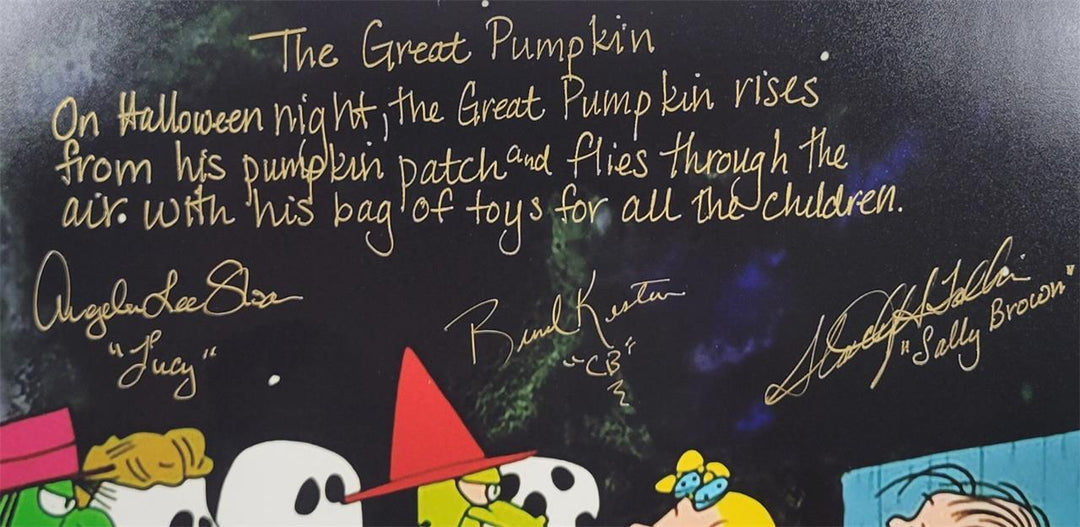 The Great Pumpkin
On Halloween night, the Great Pumpkin rises
from his pumpkin patch and flies through the
air. with his bag of toys for all the children.
Angela Lee Sloan
"Lucy"
"CB"
"Sally Brown"